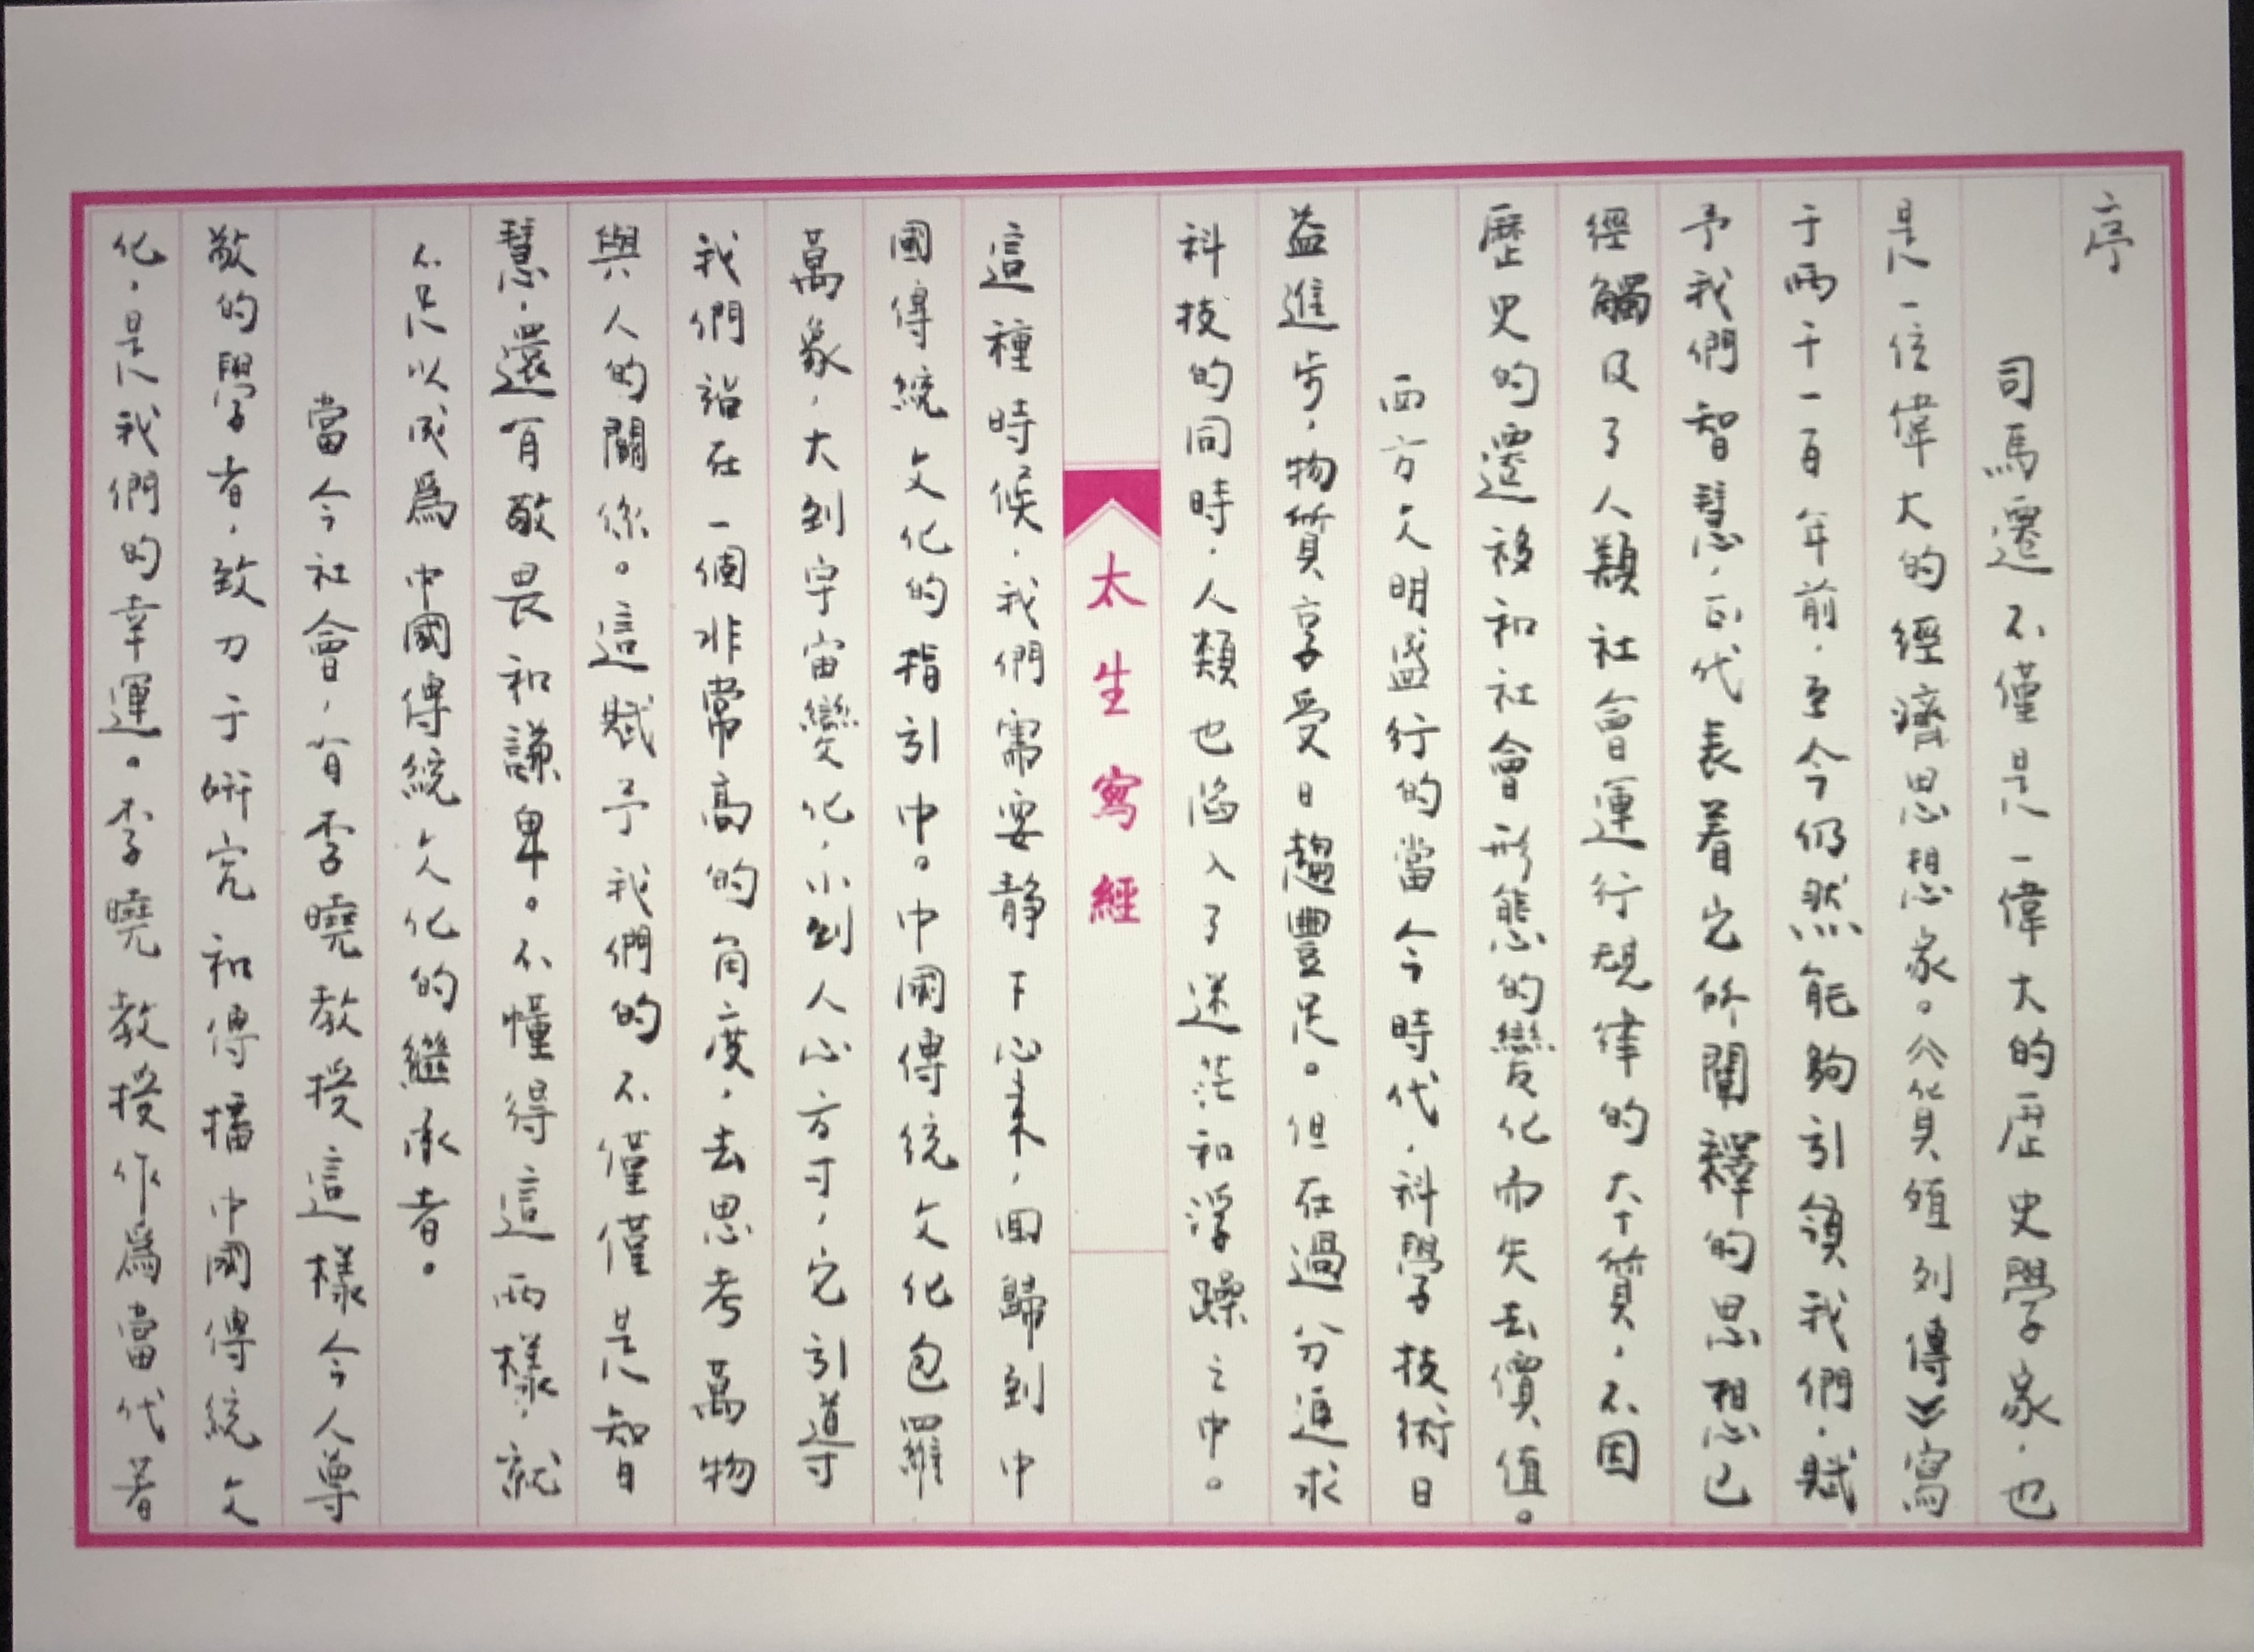 序
司馬遷不僅是一偉大的歷史學家，也
是一位偉大的經濟思想家。《貨殖列傳》寫
于兩千一百年前，至今仍然能夠引領我們，賦
予我們智慧，而代表着它所闡釋的思想已
經觸及了人類社會運行規律的本質，不因
歷史的遷移和社會形態的變化而失去價值。
西方文明盛行的當今時代，科學技術日
益進步，物質享受日趨豐足。但在過分追求
科技的同時，人類也陷入了迷茫和浮躁之中。
太生寫經
這種時候，我們需要靜下心來，回歸到中
國傳統文化的指引中。中國傳統文化包羅
萬象，大到宇宙變化，小到人心方寸，它引導
我們站在一個非常高的角度，去思考萬物
與人的關係。這賦予我們的不僅僅是智
慧，還有敬畏和謙卑。不懂得這兩樣，就
不足以成爲中國傳統文化的繼承者。
當今社會，有李曉教授這樣令人尊
敬的學者，致力于研究和傳播中國傳統文
化，是我們的幸運。李曉教授作爲當代著